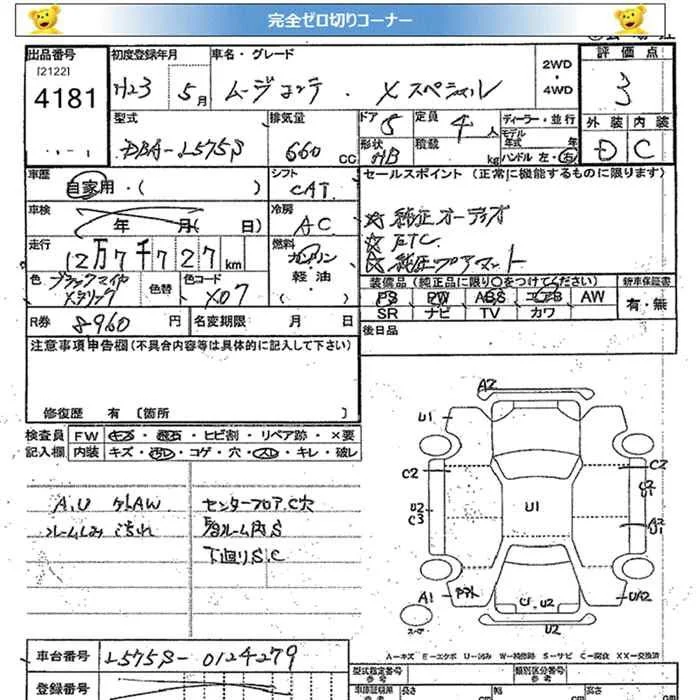 完全ゼロ切りコーナー
出品番号
[2122]
4181
初度登録年月
H23 5月
車名・グレード
ムーヴコンテ ・ Xスペシャル
2WD
・
4WD
評価点
3
外装 内装
D C
型式
DBA-L575S
排気量
660 CC
ドア 5
形状 HB
定員 4人
積載 kg
ディーラー・並行
モデル年式 年
ハンドル 左・右
車歴
自家用・( )
シフト
CAT
セールスポイント (正常に機能するものに限ります)
☆純正オーディオ
☆ETC
☆純正フロアマット
車検
年 月( 日)
冷房
AC
走行
12万7千727km
燃料
ガソリン
・
軽油
色
ブラックマイカ
メタリック
色替
色コード
X07
装備品(純正品に限り○をつけてください)
PS PW ABS エアB AW
SR ナビ TV カワ
新車保証書
有・無
R券 8960円
名変期限 月 日
後日品
注意事項申告欄(不具合内容等は具体的に記入して下さい)
修復歴 有 [箇所 ]
検査員
記入欄
FW キズ・飛石・ヒビ割・リペア跡・×要
内装 キズ・汚レ・コゲ・穴・スレ・キレ・破レ
A.U ケガAW
ルームしみ こげれ
センターフロアC穴
下廻りS.C
A2
U1
C2
U2
C3
A1
U1
C2
U2
A2
U1
UA2
C.U2
U2
スペア
A=キズ E=エクボ U=凹み W=補修跡 S=サビ C=腐食 XX=交換済
車台番号
L575S-0124279
登録番号
型式指定番号
参考
類別区分番号
参考
車庫証明用
参考
長さ cm
幅 cm
高さ cm